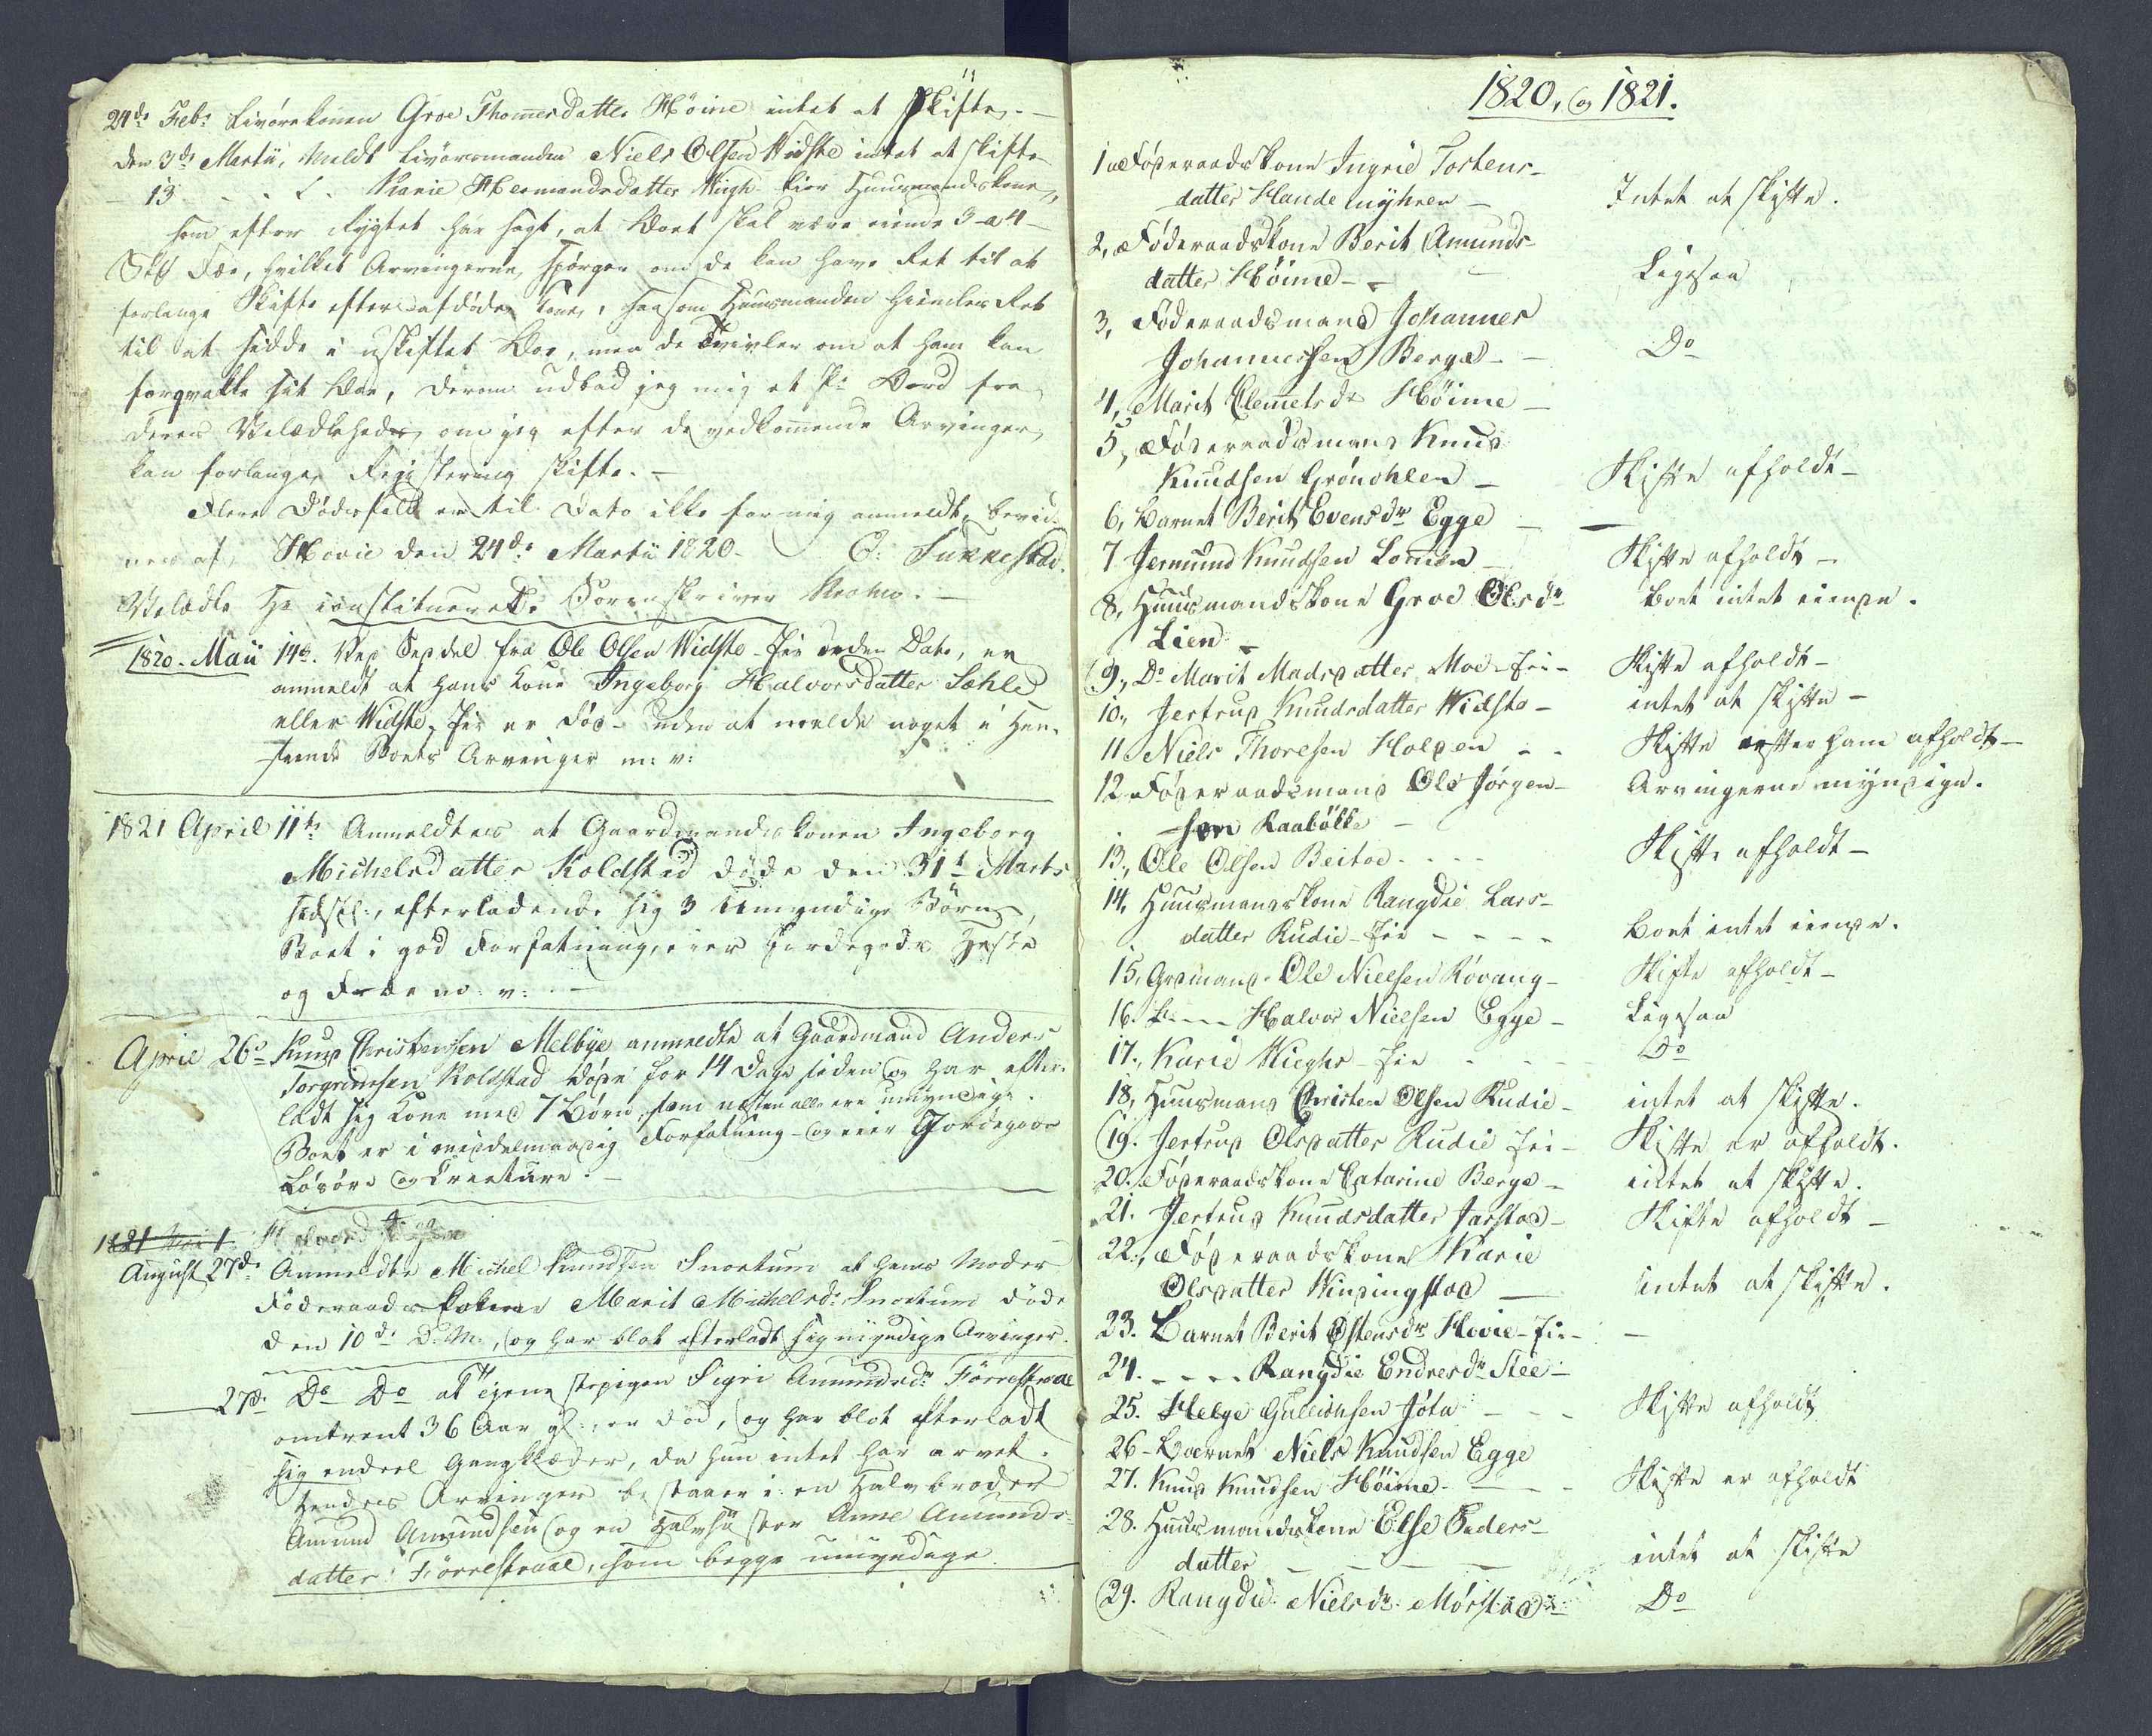 24de Febr Livørekonen Groe Thomesdatter Høine intet at Skifte. —
den 3de Martii, Meldt Livøremanden Niels Olsen Widste intet at skifte
– 13 Marie Hermandsdatter Huusmandskone,
som efter Rygtet har sagt, at Boet skal være eiende 3 a 4 –
Fæe, hvilket Arvingerne spørger om de kan have Ret til at
forlange Skifte efter afdøde Kone, saasom Huusmanden Ret
til at sidde i uskiftet Boe, men de tvivler om at ham kan
sit Boe, derom udbad jeg mig et Par Ord fra
deres Velædlehed, om jeg efter de vedkommende Arvinger
kan forlange Registrering skifte. –
Flere Dødsfald er til Dato ikke for mig anmeldt, bevid-
nes af Hovie den 24de Martii 1820.
Velædle Hr constituerede Sorenskriver
1820. Maii 14de. Ved Seddel fra Ole Olsen Widste Eie Dato, er
anmeldt at hans Kone Ingeborg Halvorsdatter Sæhle
eller Widste Eie er død – uden at melde noget i Hen-
seende Boets Arvinger m: v:
1821 April 11te Anmeldtes at Gaardmandskonen Ingeborg
Michelsdatter Koldstad døde den 31te Marts
sidstl:, efterladende sig 3 Umyndige Børn,
Boet i god Forfatning, eier Jordegods Heste
og Fæe m: v: –
April 26de Knud Christensen Melbye anmeldte at Gaardmand Anders
Torgrimsen Koldstad døde for 14 Dage siden og har efter-
ladt sig Kone med 7 Børn, som næsten alle ere umyndige.
Boet er i middelmaadig Forfatning – og eier Jordegods
Løsøre og Creature. –
1821 Mai 1
August 27de Anmeldte Michel Knudsen Snortum at hans Moder
Føderaads Marit Michelsdr Snortum døde
den 10de D. M., og har blot efterladt sig myndige Arvinger.
27de Do Do at pigen Sigri Amundsdr Førrestraal
omtrent 36 Aar gl: er død, og har blot efterladt
sig endeel Gangklæder, da hun intet har arvet.
Hendes Arvinger bestaaer i en Halvbroder
Amund Amundsen og en Halvsøster Anne Amunds-
datter Førrestraal, som begge umyndige.
1820, og 1821.
1. Føderaadskone Ingrid Torstens-
datter Hande nyhren – Intet at skifte.
2, Føderaadskone Berit Amunds-
datter Høime – Ligesaa
3, Føderaadsmand Johannes
Johannessen Berge – Do
4, Marit Clemetsdr Høime –
5, Føderaadsmand Knud
Knudsen Grønohlen – Skifte afholdt –
6, Barnet Berit Evensdr Egge –
7 Jermund Knudsen Lomen – Skifte afholdt –
8, Huusmandskone Groe Olsdr Boet intet eiende.
Lien –
9, Do Marit Madsdatter Moe Eie – Skifte afholdt –
10, Jertrud Knudsdatter Widste – intet at skifte –
11 Niels Thoresen Holden – – Skifte efter ham afholdt –
12 Føderaadsmand Ole Jørgen- Arvingerne myndige.
sen Raabøle –
13, Ole Olsen Beitoe – – – Skifte afholdt –
14, Huusmandskone Rangdie Lars-
datter Rudie Eie – – – – Boet intet eiende.
15, Grdmand Ole Nielsen Røvang – Skifte afholdt –
16. – – – Halvor Nielsen Egge – Ligesaa
17, Karie Wieghs Eie – – – Do
18, Huusmand Christen Olsen Rudie – intet at skifte.
19. Jertrud Olsdatter Rudie Eie – Skifte er afholdt.
20. Føderaadskone Catarine Berge – intet at skifte.
21. Jertrud Knudsdatter Jarstad – Skifte afholdt –
22, Føderaadskone Karie
Olsdatter Windingstad – intet at skifte.
23. Barnet Berit Østensdr Hovie Eie – –
24. – – – Rangdie Endresdr Slee –
25. Helge Gullichsen Jøta – – – Skifte afholdt
26 – Barnet Niels Knudsen Egge
27. Knud Knudsen Høime – – – Skifte er afholdt
28. Huusmandskone Else Enders-
datter – – – intet at skifte
29. Rangdie Nielsdr Mørstad – Do